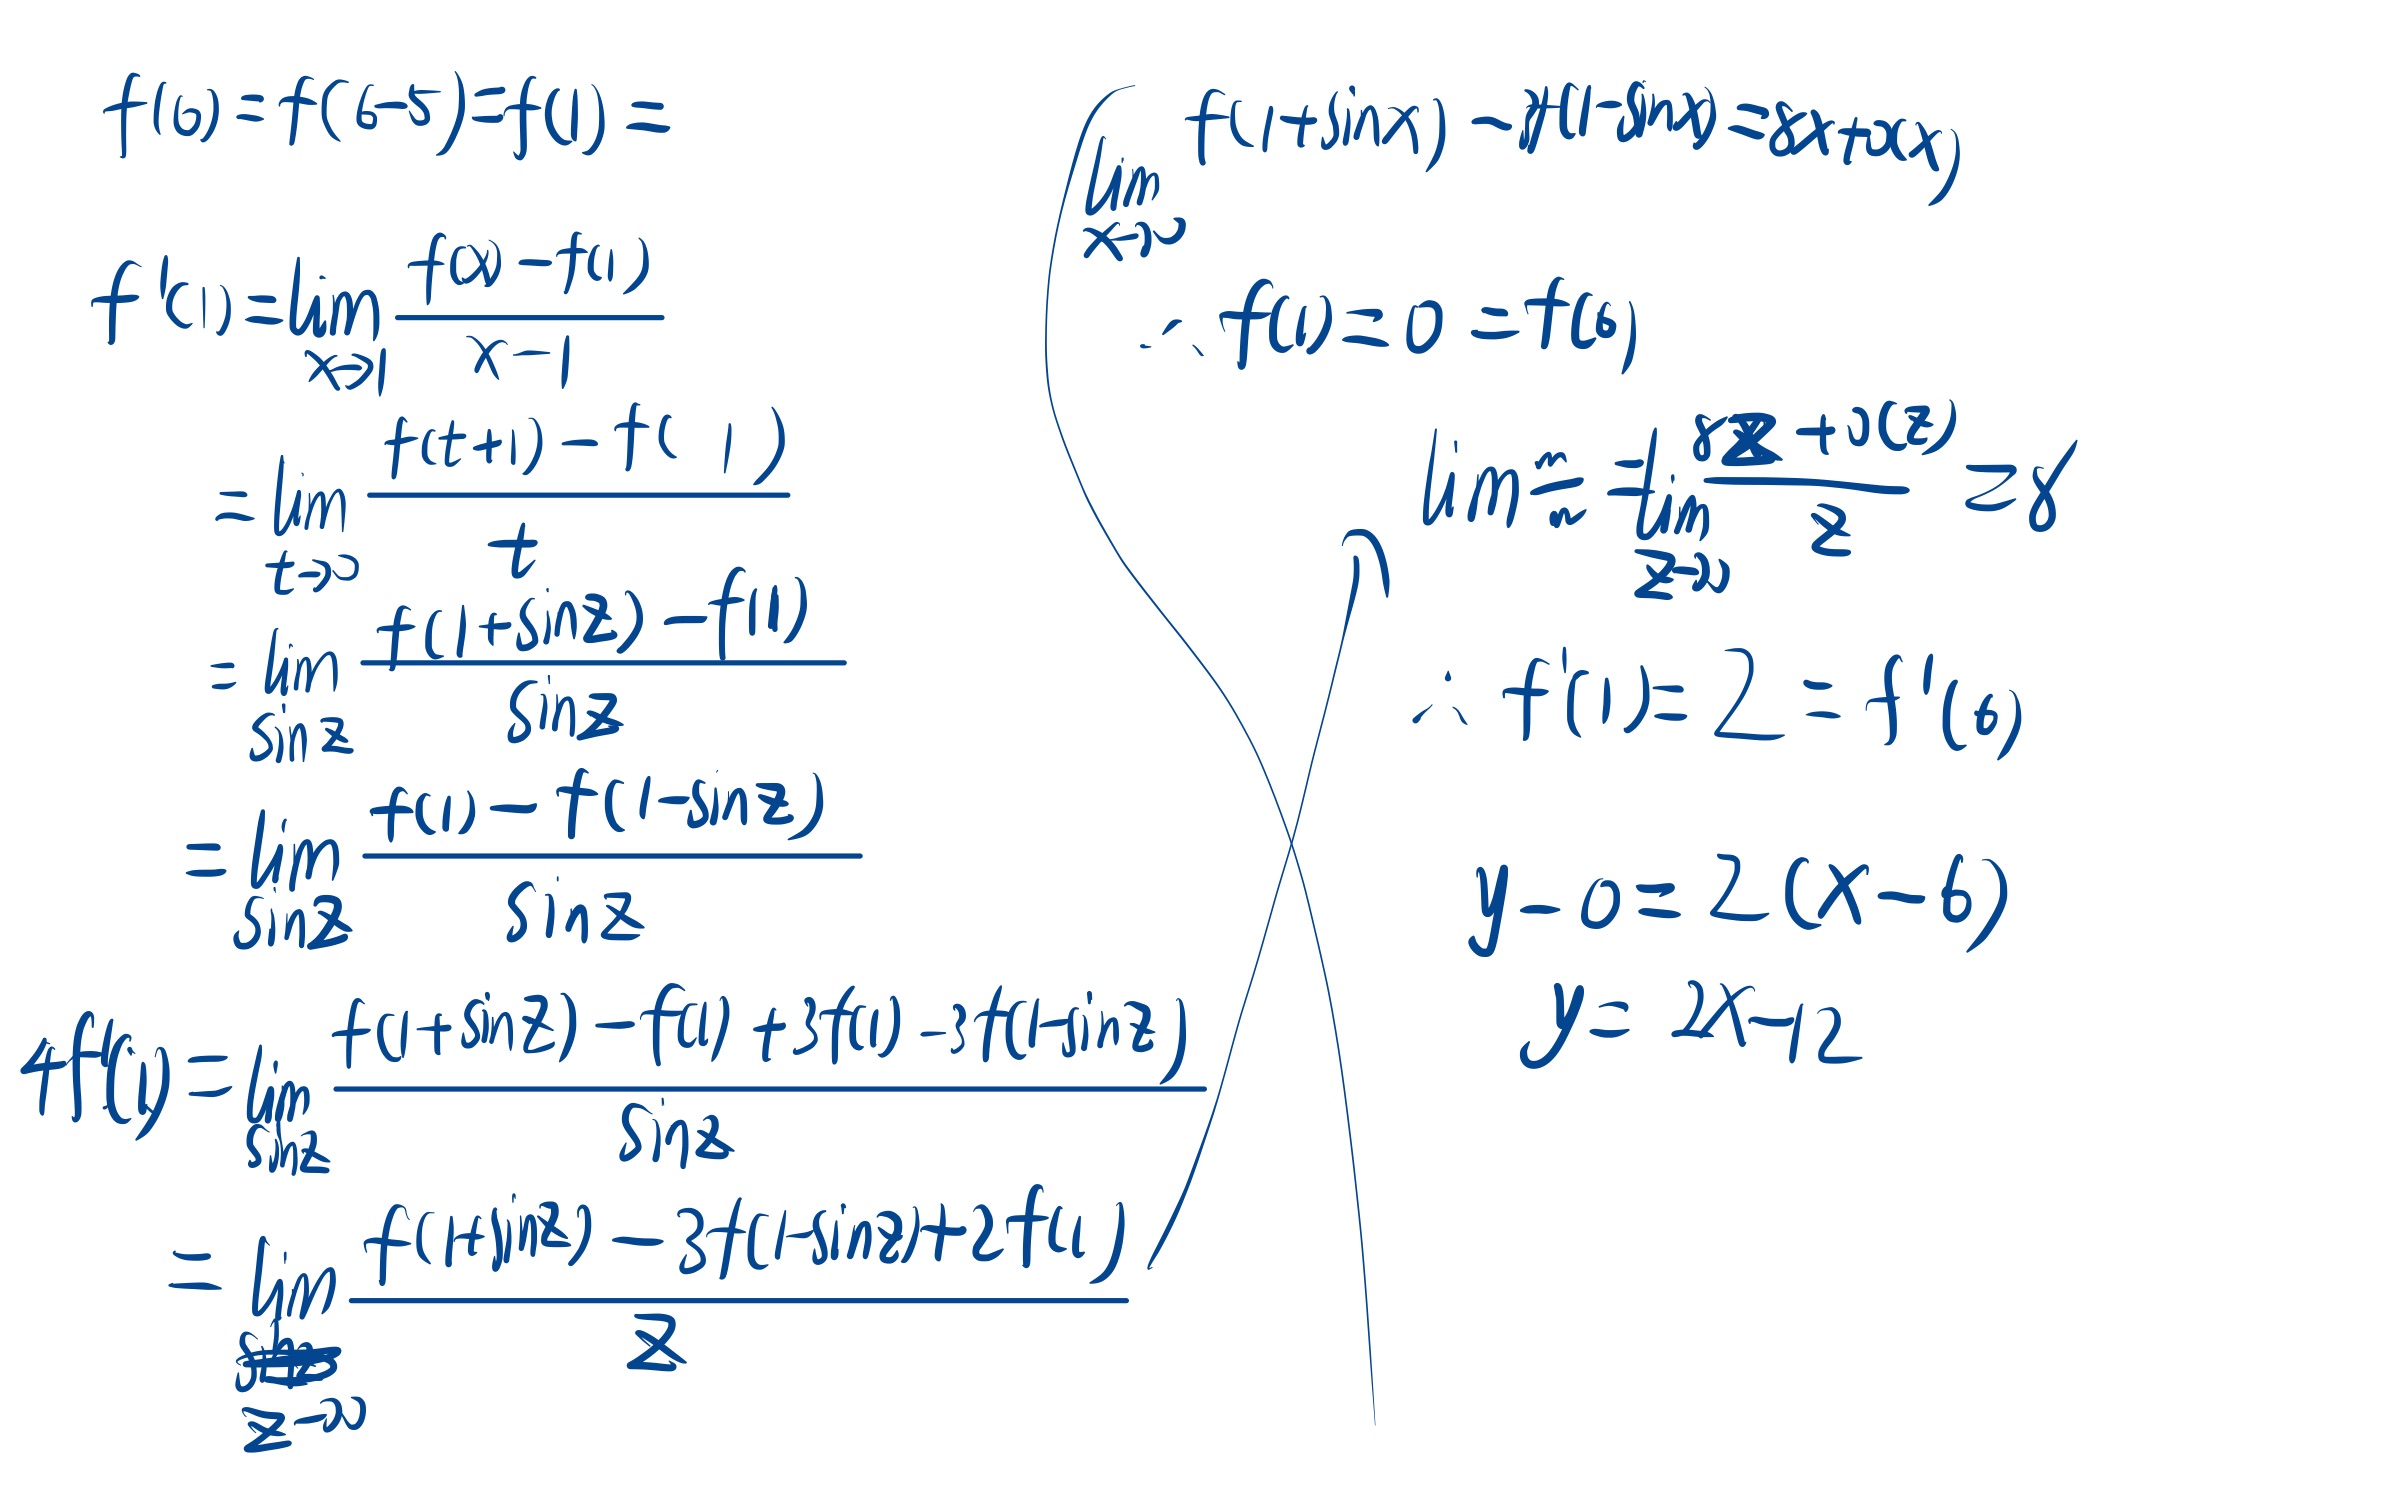 f(6) = f(6-5) = f(1) =
f'(1) = lim x→1 (f(x) - f(1)) / (x - 1)
= lim t→0 (f(t+1) - f(1)) / t
= lim sinz (f(1+sinz) - f(1)) / sinz
= lim sinz (f(1) - f(1-sinz)) / sinz
4f'(1) = lim sinz (f(1+sinz) - f(1) + 3f(1) - 3f(1-sinz)) / sinz
= lim z→0 (f(1+sinz) - 3f(1-sinz) + 2f(1)) / z
lim x→0 f(1+sinx) - 3f(1-sinx) = 8x + α(x)
∴ f(1) = 0 = f(6)
lim ~/~ = lim z→0 (8z + o(z)) / z = 8
∴ f'(1) = 2 = f'(6)
y - 0 = 2(x - 6)
y = 2x - 12